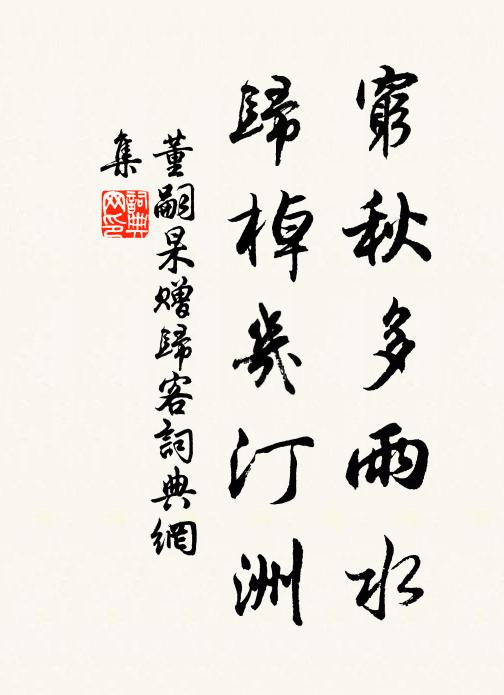 窮秋多雨水
歸棹幾汀洲
董嗣杲贈歸客詞典網
集
詞典网印